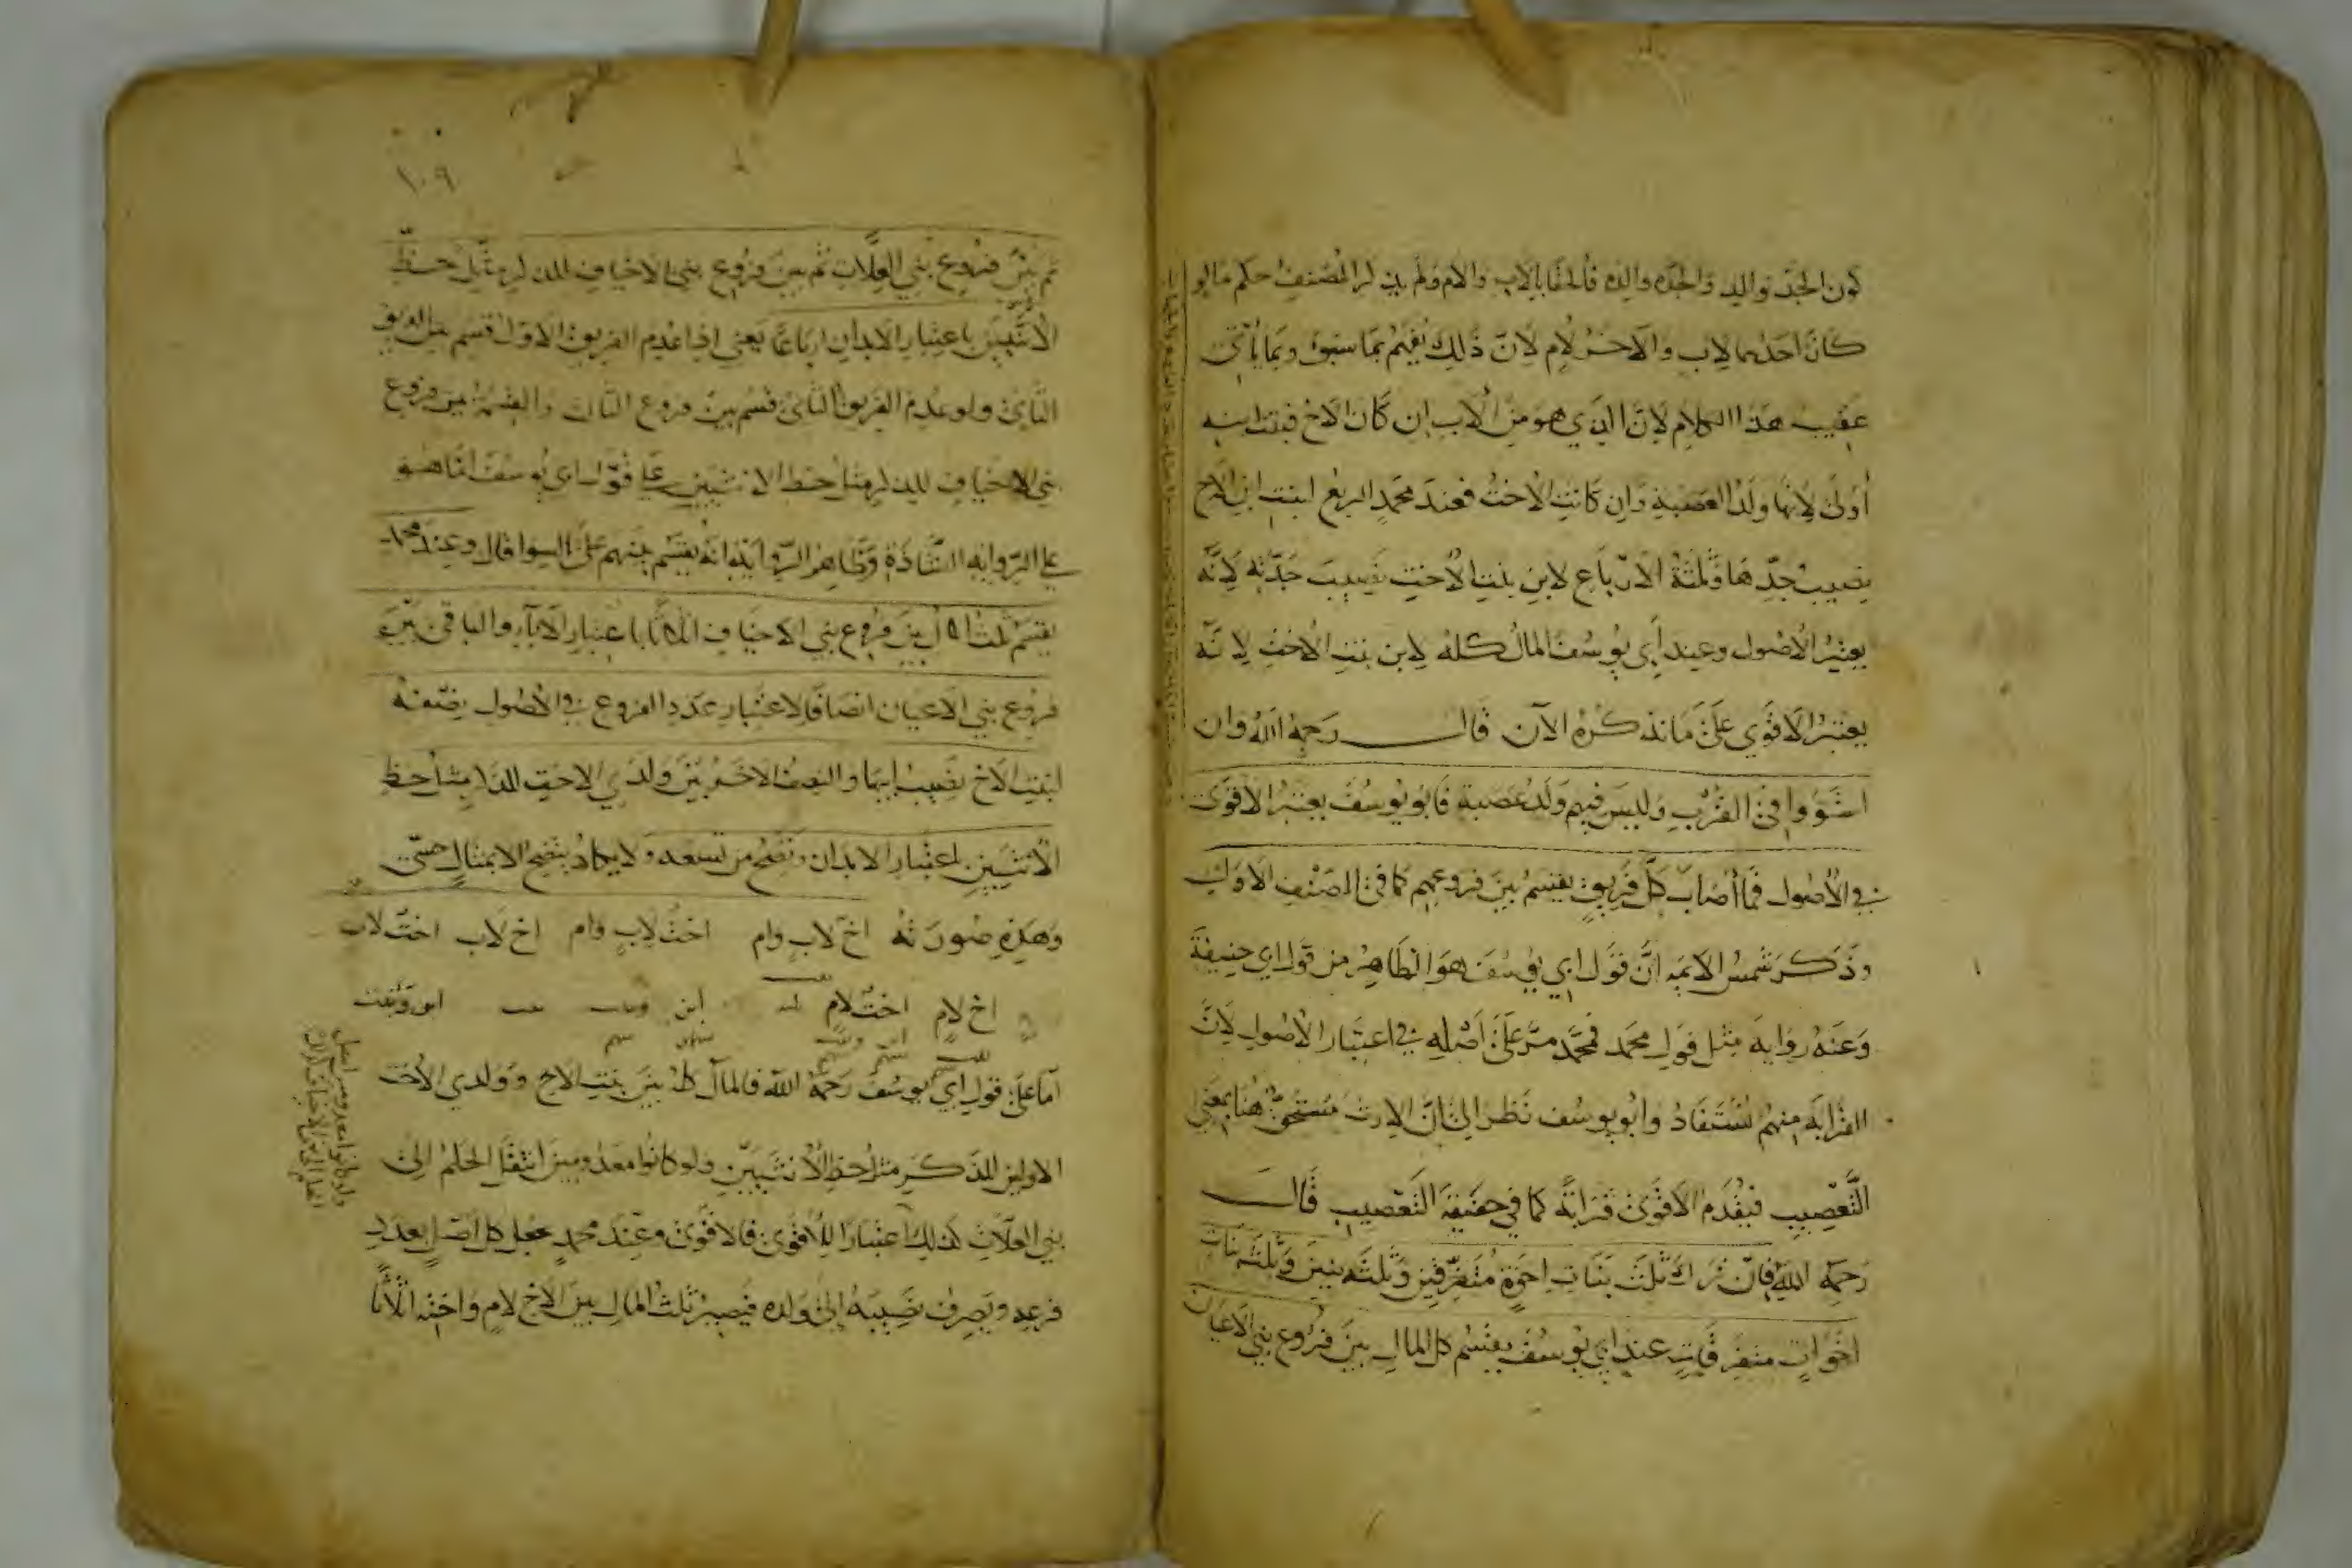 كون الجد توالد والجدة والده فألحقا بالاب والام ولم يذكر المصنف حكم ما لو
كَانَ احدهما لاب والآخر لأم لانّ ذلك يفهم بما سبق وبما يأتي
عقيب هذا الكلام لانّ الذي هو من الأب ان كان الاخ فبنت ابنه
أولى لانها ولد العصبة وان كانت الاخت فعند محمد الربع لبنت ابن الاخ
نصيب جدّها وثلثة الارباع لابن بنت الاخت نصيب جدّته لانّه
يعتبر الاصول وعند أبي يوسف المال كله لابن بنت الاخت لانّه
يعتبر الاقوى على ما نذكره الآن قال رحمه الله وان
استووا في القرب وليس فيهم ولد عصبة فابو يوسف يعتبر الاقوى
في الأصول فما أصاب كلّ فريق يقسم بين فروعهم كما في الصنف الاول
وذكر شمس الايمه انّ قول ابي يوسف هو الظاهر من قول ابي حنيفة
وعنه رواية مثل قول محمد فمحمّد مرّ على أصله في اعتبار الاصول لانّ
القرابة منهم تستفاد وابو يوسف نظر الى انّ الارث مستحق هنا بمعنى
التّعصيب فيقدم الاقوى قرابةً كما في حقيقة التعصيب قال
رحمه الله فان ترك ثلث بنات اخوة متفرّقين وثلثة بنين وثلثة بنات
اخوات متفرقات عند ابي يوسف يقسم كل المال بين فروع بني الاعيان
١٠٩
ثم بين فروع بني العلّات ثم بين فروع بني الاخياف للذكر مثل حظّ
الانثيين باعتبار الابدان ارباعًا يعني اذا عدم الفريق الاول قسم على الفريق
الثاني ولو عدم الفريق الثاني قسم بين فروع الثالث والقسمة بين فروع
بني الاخياف للذكر مثل حظ الانثيين على قول ابي يوسف انما هو
على الرواية الشاذة وظاهر الرواية انه يقسم بينهم على السوا قال وعند محمد
يقسم ثلث المال بين فروع بني الاخياف اثلاثا باعتبار الآباء والباقي بين
فروع بني الاعيان انصافا لاعتبار عدد الفروع في الأصول نصفه
لبنت الاخ نصيب ابيها والنصف الآخر بين ولدي الاخت للذكر مثل حظ
الأنثيين باعتبار الابدان وتصح من تسعة ولا يكاد يتضح الا بمثال حسّي
وهذه صورته اخ لاب وام اخت لاب وام اخ لاب اخت لاب
اخ لام اخت لام ابن ابن وبنت
اما على قول ابي يوسف رحمه الله فالمال كله بين بنت الاخ وولدي الاخت
الاولين للذكر مثل حظ الأنثيين ولو كانوا معدومين انتقل الحكم الى
بني العلّات كذلك اعتبارا للأقوى فالاقوى وعند محمد يجعل كل اصل بعدد
فرعه ويصرف نصيبه الى ولده فيصير ثلث المال بين الاخ لام واخته اثلاثا